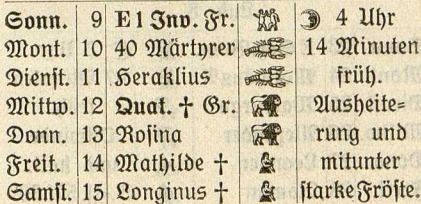 Sonn. 9 E 1 Inv. Fr. 4 Uhr
Mont. 10 40 Märtyrer 14 Minuten
Dienst. 11 Heraklius früh.
Mittw. 12 Quat. † Gr. Ausheite=
Donn. 13 Rosina rung und
Freit. 14 Mathilde † mitunter
Samst. 15 Longinus † starke Fröste.